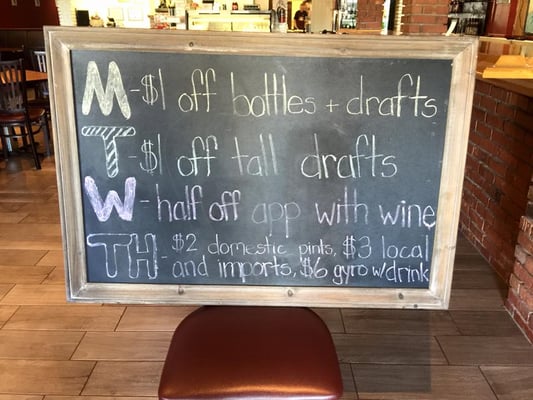 M-$1 off bottles + drafts
T-$1 off tall drafts
W-half off app with wine
TH-$2 domestic pints, $3 local
and imports, $6 gyro w/drink